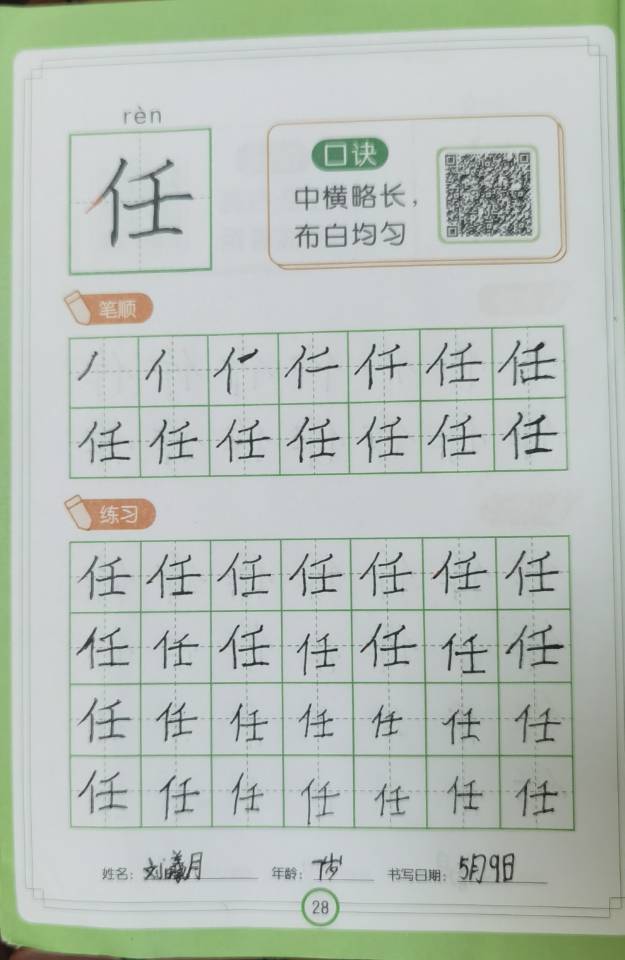 rèn
任
口诀
中横略长，
布白均匀
笔顺
丿 亻 仁 仟 任 任
任 任 任 任 任 任 任
练习
任 任 任 任 任 任 任
任 任 任 任 任 任 任
任 任 任 任 任 任 任
任 任 任 任 任 任 任
姓名：刘曦月 年龄：7岁 书写日期：5月9日
28